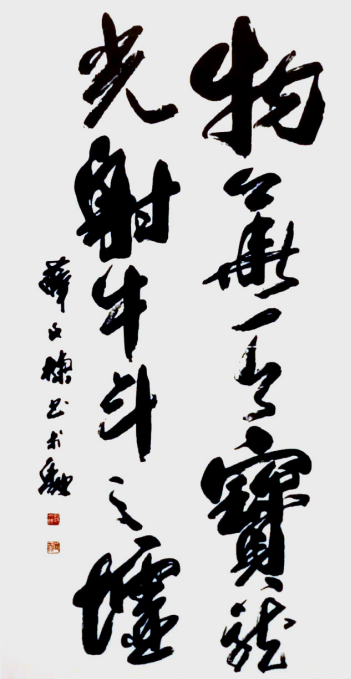 物華天寶龍
光射牛斗之墟
薛文